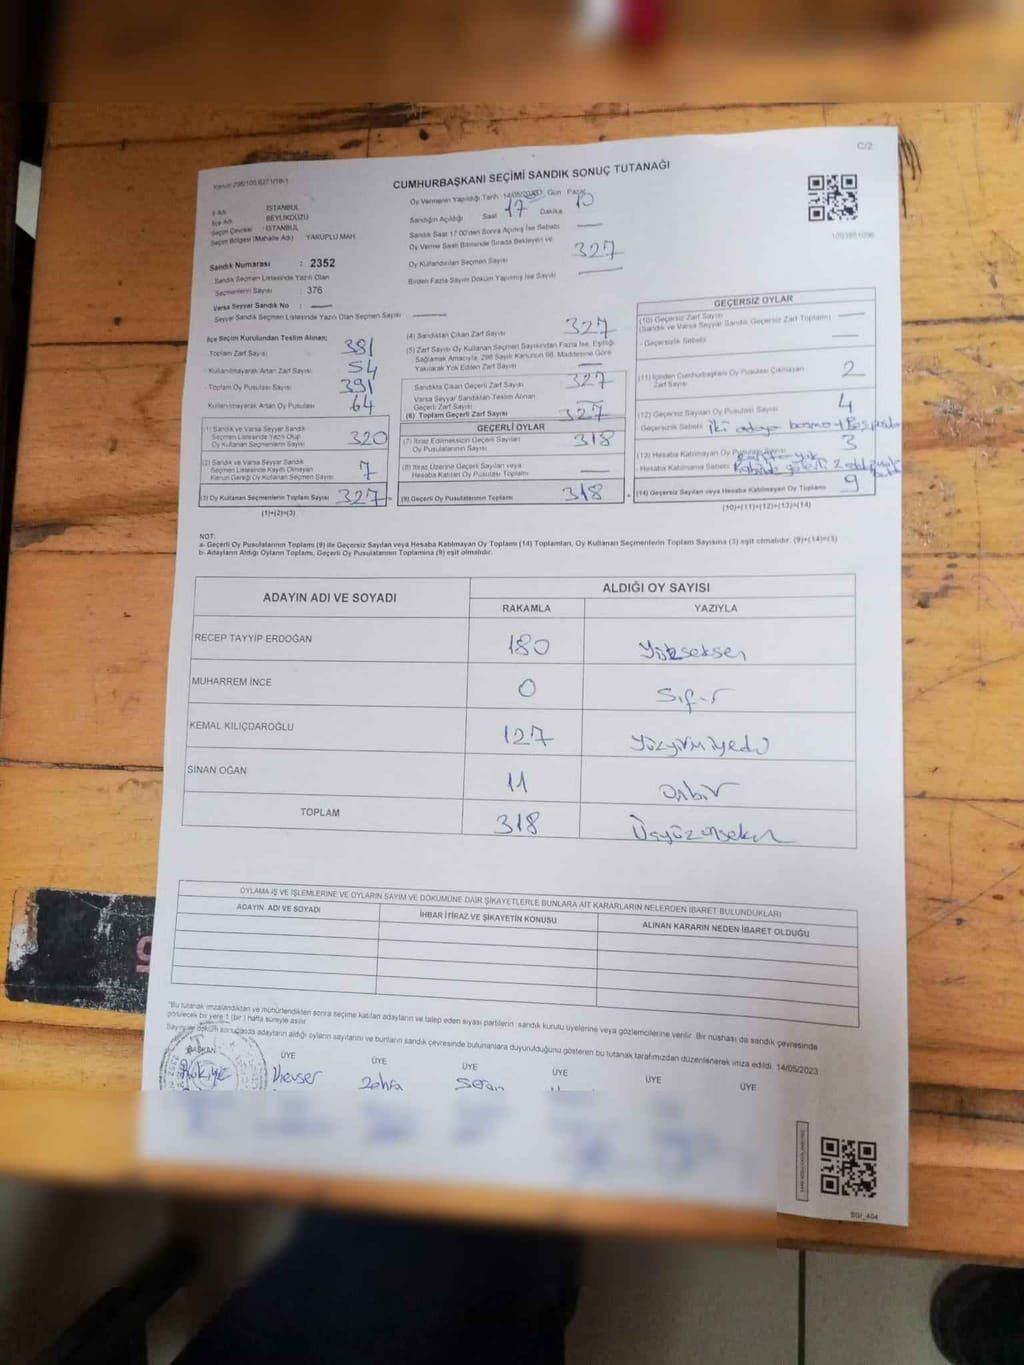 C/2
Kanun:298/105,6271/18-1
CUMHURBAŞKANI SEÇİMİ SANDIK SONUÇ TUTANAĞI
İl Adı : İSTANBUL
İlçe Adı : BEYLİKDÜZÜ
Seçim Çevresi : İSTANBUL
Seçim Bölgesi (Mahalle Adı) YAKUPLU MAH.
Sandık Numarası : 2352
Sandık Seçmen Listesinde Yazılı Olan
Seçmenlerin Sayısı : 376
Varsa Seyyar Sandık No :
Seyyar Sandık Seçmen Listesinde Yazılı Olan Seçmen Sayısı
Oy Vermenin Yapıldığı Tarih :14/05/2023 Gün :Pazar
Sandığın Açıldığı Saat 17 Dakika 10
Sandık Saat 17:00'den Sonra Açılmış İse Sebebi
Oy Verme Saati Bitiminde Sırada Bekleyen ve
Oy Kullandırılan Seçmen Sayısı 327
Birden Fazla Sayım Döküm Yapılmış İse Sayısı
İlçe Seçim Kurulundan Teslim Alınan;
Toplam Zarf Sayısı 381
- Kullanılmayarak Artan Zarf Sayısı 54
- Toplam Oy Pusulası Sayısı 391
- Kullanılmayarak Artan Oy Pusulası 64
(1) Sandık ve Varsa Seyyar Sandık
Seçmen Listesinde Yazılı Olup
Oy Kullanan Seçmenlerin Sayısı 320
(2) Sandık ve Varsa Seyyar Sandık
Seçmen Listesinde Kayıtlı Olmayan
Kanun Gereği Oy Kullanan Seçmen Sayısı 7
(3) Oy Kullanan Seçmenlerin Toplam Sayısı 327
(1)+(2)=(3)
(4) Sandıktan Çıkan Zarf Sayısı 327
(5) Zarf Sayısı Oy Kullanan Seçmen Sayısından Fazla İse, Eşitliği
Sağlamak Amacıyla, 298 Sayılı Kanunun 98. Maddesine Göre
Yakılarak Yok Edilen Zarf Sayısı
Sandıkta Çıkan Geçerli Zarf Sayısı 327
Varsa Seyyar Sandıktan Teslim Alınan
Geçerli Zarf Sayısı
(6) Toplam Geçerli Zarf Sayısı 327
GEÇERLİ OYLAR
(7) İtiraz Edilmeksizin Geçerli Sayılan
Oy Pusulalarının Sayısı 318
(8) İtiraz Üzerine Geçerli Sayılan veya
Hesaba Katılan Oy Pusulası Toplamı
(9) Geçerli Oy Pusulalarının Toplamı 318
GEÇERSİZ OYLAR
(10) Geçersiz Zarf Sayısı
(Sandık ve Varsa Seyyar Sandık Geçersiz Zarf Toplamı)
- Geçersizlik Sebebi
(11) İçinden Cumhurbaşkanı Oy Pusulası Çıkmayan
Zarf Sayısı 2
(12) Geçersiz Sayılan Oy Pusulası Sayısı 4
Geçersizlik Sebebi İki adaya basma
(13) Hesaba Katılmayan Oy Pusulası Sayısı 3
- Hesaba Katılmama Sebebi
(14) Geçersiz Sayılan veya Hesaba Katılmayan Oy Toplamı 9
(10)+(11)+(12)+(13)=(14)
NOT:
a- Geçerli Oy Pusulalarının Toplamı (9) ile Geçersiz Sayılan veya Hesaba Katılmayan Oy Toplamı (14) Toplamları, Oy Kullanan Seçmenlerin Toplam Sayısına (3) eşit olmalıdır. (9)+(14)=(3)
b- Adayların Aldığı Oyların Toplamı, Geçerli Oy Pusulalarının Toplamına (9) eşit olmalıdır.
ADAYIN ADI VE SOYADI ALDIĞI OY SAYISI
RAKAMLA YAZIYLA
RECEP TAYYİP ERDOĞAN 180 Yüzseksen
MUHARREM İNCE 0 Sıfır
KEMAL KILIÇDAROĞLU 127 Yüzyirmiyedi
SİNAN OĞAN 11 Onbir
TOPLAM 318 Üçyüzonsekiz
OYLAMA İŞ VE İŞLEMLERİNE VE OYLARIN SAYIM VE DÖKÜMÜNE DAİR ŞİKAYETLERLE BUNLARA AİT KARARLARIN NELERDEN İBARET BULUNDUKLARI
ADAYIN ADI VE SOYADI İHBAR İTİRAZ VE ŞİKAYETİN KONUSU ALINAN KARARIN NEDEN İBARET OLDUĞU
"Bu tutanak imzalandıktan ve mühürlendikten sonra seçime katılan adayların ve talep eden siyasi partilerin sandık kurulu üyelerine veya gözlemcilerine verilir. Bir nüshası da sandık çevresinde
görülecek bir yere 1 (bir) hafta süreyle asılır.
Sayım ve döküm sonucunda adayların aldığı oyların sayılarını ve bunların sandık çevresinde bulunanlara duyurulduğunu gösteren bu tutanak tarafımızdan düzenlenerek imza edildi. 14/05/2023
BAŞKAN ÜYE ÜYE ÜYE ÜYE ÜYE ÜYE
Rukiye Zehra
SSİ_404